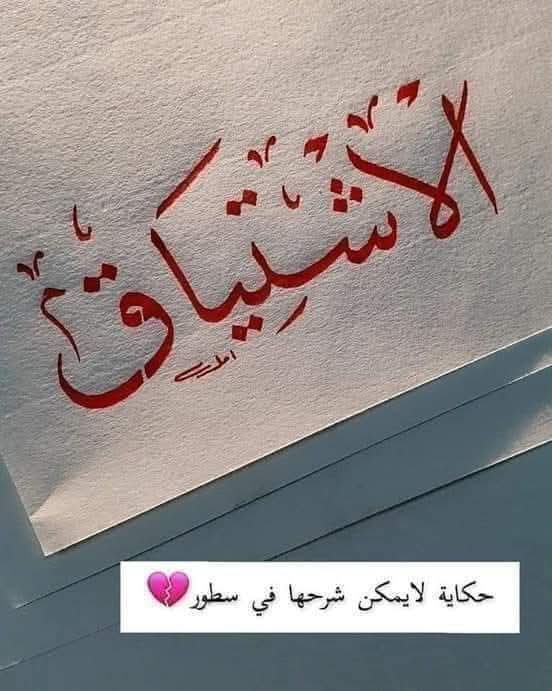 الاشتياق
حكاية لايمكن شرحها في سطور💔